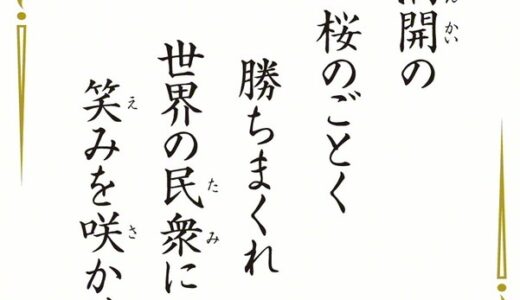 満開の
んかい
桜のごとく
勝ちまくれ
世界の民衆に
たみ
笑みを咲か
え
さ